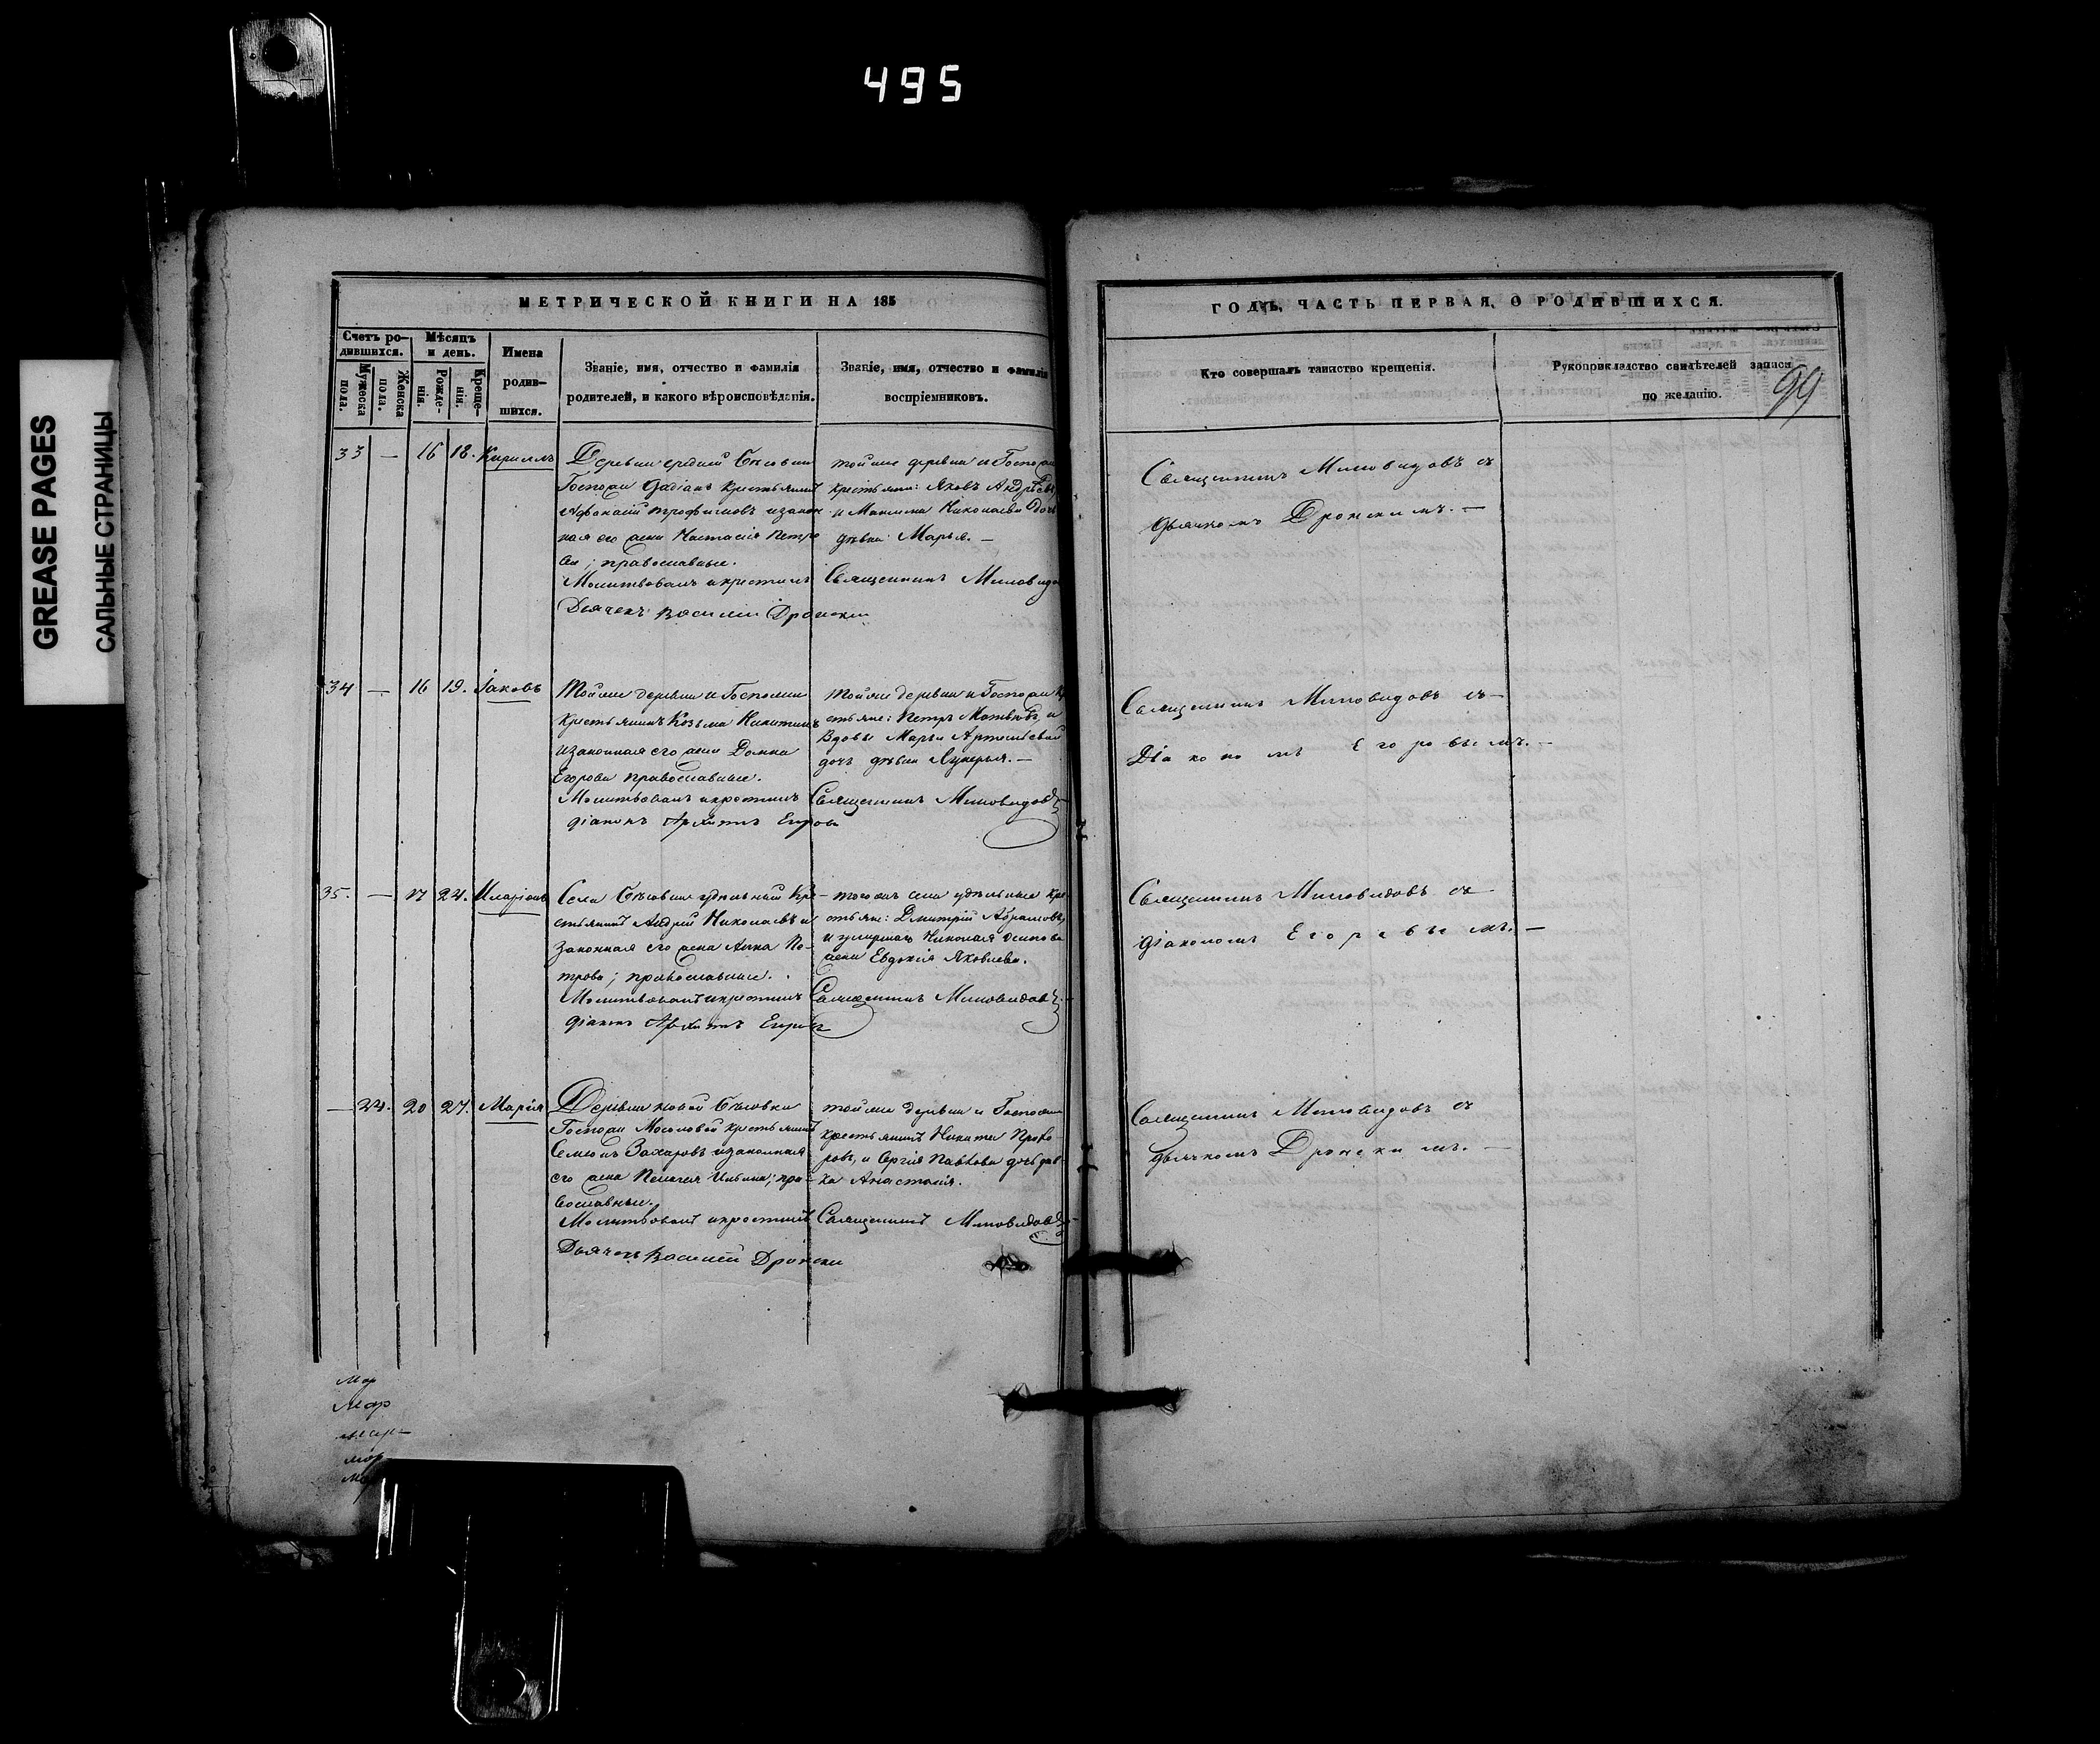 495
GREASE PAGES
САЛЬНЫЕ СТРАНИЦЫ
МЕТРИЧЕСКОЙ КНИГИ НА 185
Счетъ ро-
дившихся.
Мужеска пола.
Женска пола.
Мѣсяцъ
и день.
Рожде-
нія.
Креще-
нія.
Имена
родив-
шихся.
Званіе, имя, отчество и фамилія
родителей, и какого вѣроисповѣданія.
Званіе, имя, отчество и фамилія
воспріемниковъ.
33 — 16 18. Кириллъ
Деревни средней
Господи крестьянинъ
Афанасій Трофимовъ и закон
ная его жена Настасія Петро
ва; православные.
Молитвовалъ и крестилъ
Дьячекъ Василій Дронски
тойже деревни и Госпожи
крестьяне: Яковъ Андрѣевъ
и Максима Николаева дочь
дѣвка Марья. —
Священникъ Миловидо
34 — 16 19. Іаковъ
Тойже деревни и Госпожи
крестьянинъ Козьма Никитинъ
и законная его жена Домна
Егорова православные.
Молитвовалъ и крестилъ
діаконъ Архипъ Егоров
тойже деревни и Госпожи Кр
стьяне: Петръ Матвѣевъ, и
Вдовы Марьи Артемьевой
дочь дѣвка Лукерья. —
Священникъ Миловидовъ
35. — 17 24. Иларіонъ
Села удѣльный Кре
стьянинъ Андрей Николаевъ и
законная его жена Анна Пе-
трова; православные.
Молитвовалъ и крестилъ
діаконъ Архипъ Егоров
— тогожъ села удѣльные Кре
стьяне: Дмитрій Абрамовъ,
и умершаго Николая Осипова
жена Евдокія Яковлева.
Священникъ Миловидовъ
— 24. 20 27. Марія
Деревни новой
Господи Мосоловой крестьянинъ
Семенъ Захаровъ и законная
его жена Пелагея Ильина; пра-
вославные.
Молитвовалъ и крестилъ
Дьячекъ Василій Дронски
тойже деревни и Госпожи
крестьянинъ Никита Прохо
ровъ, и Сергія Павлова дочь дѣв-
ка Анастасія.
Священникъ Миловидовъ
Мар
Мар
мар—
мар
мар
ГОДЪ, ЧАСТЬ ПЕРВАЯ, О РОДИВШИХСЯ.
Кто совершалъ таинство крещенія.
Рукоприкладство свидѣтелей записи
по желанію.
99
Священникъ Миловидовъ съ
дьячкомъ Дронскимъ. —
Священникъ Миловидовъ съ—
Діакономъ Егоровымъ. —
Священникъ Миловидовъ съ
діакономъ Егоровымъ. —
Священникъ Миловидовъ съ
дьячкомъ Дронскимъ. —